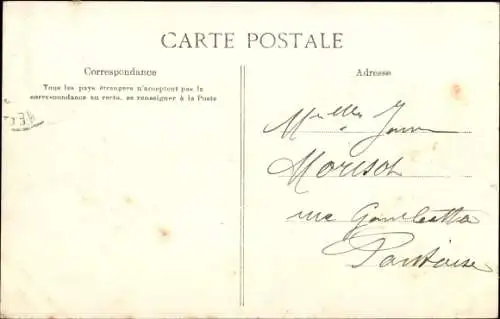 CARTE POSTALE
Correspondance
Tous les pays étrangers n'acceptent pas la
correspondance au recto, se renseigner à la Poste
Adresse
Melles
Morisot
rue Gambetta
Pontoise